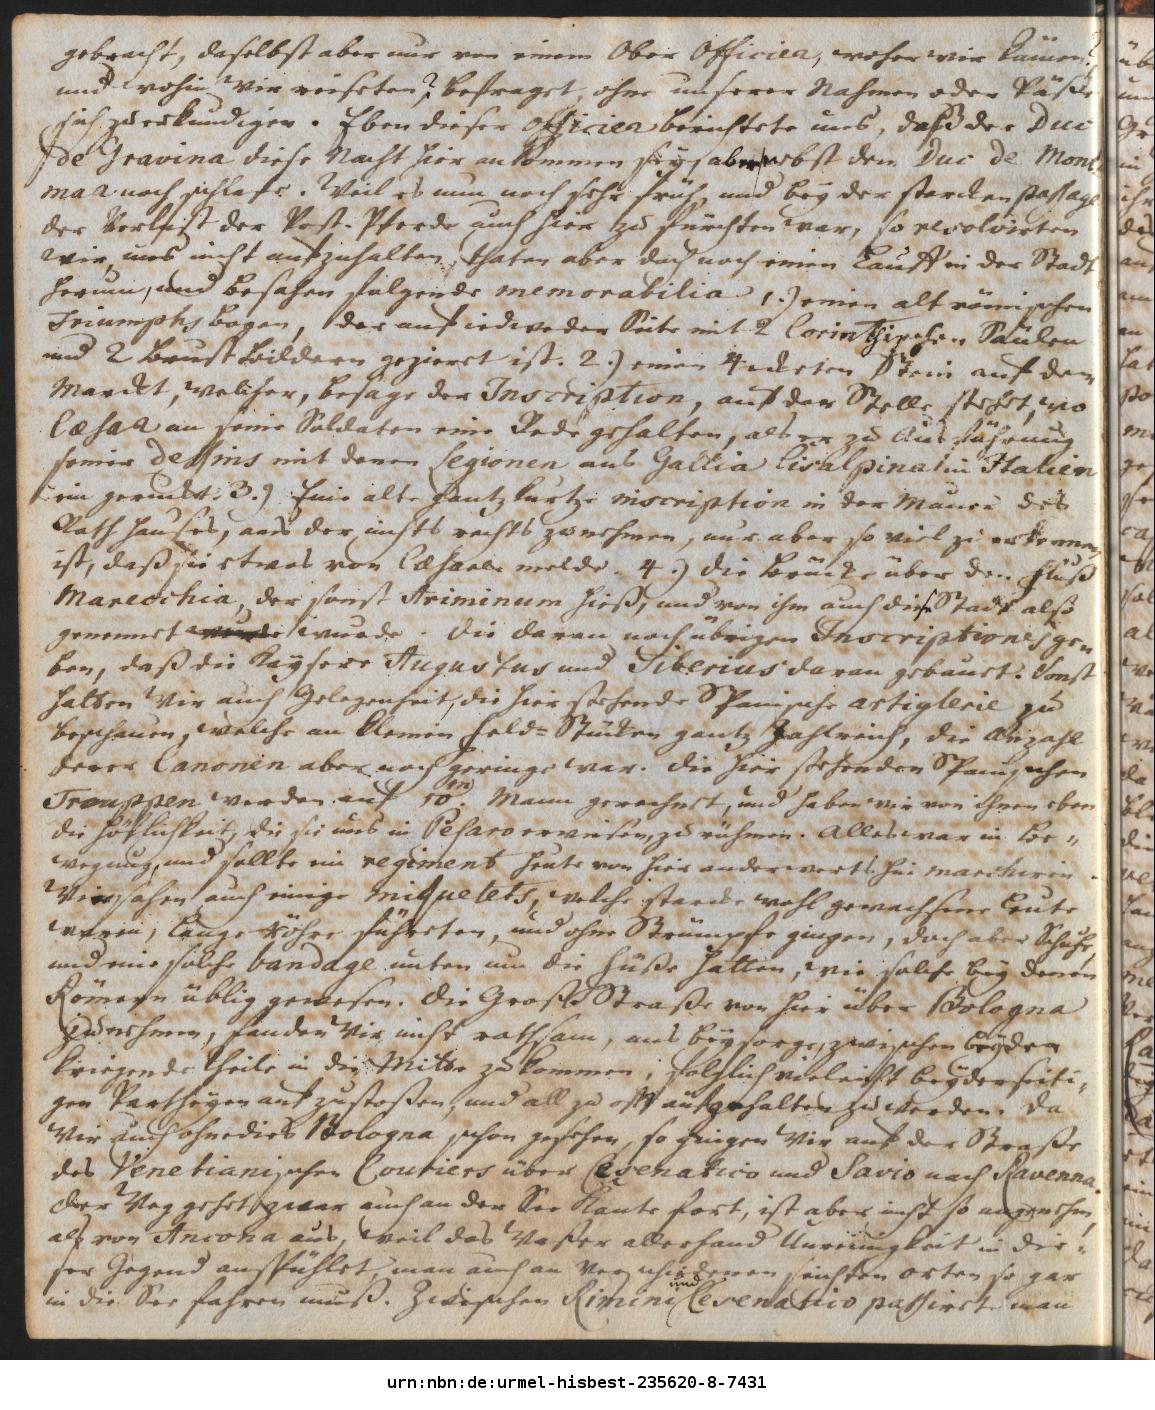 gebracht, daselbst aber nur von einem Ober Officier, woher wir kämen?
und wohin wir reiseten? befraget, ohne unserer Nahmen oder Päße
sich zu erkundigen. Eben dieser Officier berichtete uns, daß der Duc
de Gravina diese Nacht hier ankommen sey, aber nebst dem Duc de Mont
mar noch schlafe. Weil es nun noch sehr früh, und bey der starcken passage
der Verlust der Post-Pferde auch hier zu fürchten war, so resolvirten
wir, uns nicht aufzuhalten, thaten aber doch noch einen Lauff in der Stadt
herum, und besahen folgende memorabilia 1.) einen alt römischen
Triumphs bogen, der auf iedweder Seite mit 2 Corinthischen Säulen
und 2 Brust Bildern gezieret ist. 2.) einen 4eckten Stein auf dem
Marckt, welcher, besage der Inscription, auf der Stelle stehet, wo
Cæsar an seine Soldaten eine Rede gehalten, als er zu Ausführung
seiner desseins mit denen Legionen aus Gallia Cisalpina in Italien
ein geruckt. 3.) Eine alte gantz kurtze inscription in der Mauer des
Rathhauses, aus der nichts rechts zu nehmen, nur aber so viel zu erkennen
ist, daß sie etwas von Cæsare melde. 4.) die Brücke über den Fluß
Marecchia, der sonst Ariminum hieß, und von ihm auch diese Stadt also
genennet wurde. Die daran noch übrigen Inscriptiones ge-
ben, daß die Kaysere Augustus und Tiberius daran gebauet. Sonst
hatten Wir auch Gelegenheit, die hier stehende Spanische artiglerie zu
beschauen, welche an kleinen Feld-Stücken gantz zahlreich, die Anzahl
derer Canonen aber noch geringe war. Die hier stehenden Spanischen
Trouppen werden auf 10m. Mann gerechnet, und haben wir von ihnen eben
die Höflichkeit, die sie uns in Pesaro erwiesen, zu rühmen. Alles war in Be-
wegung, und sollte ein regiment heute von hier anderwerts hin marchiren.
Wir sahen auch einige miquelets, welche starcke wohl gewachsene Leute
waren, lange Röhre führeten, und ohne Strümpfe gingen, doch aber Schuhe,
und eine solche bandage unten um die Füße hatten, wie solche bey denen
Römern üblig gewesen. Die Große Straße von hier über Bologna
zu nehmen, fanden Wir nicht rathsam, aus beysorge, zwischen beyden
kriegende theile in die Mitte zu kommen, folglich vieleicht beyderseiti-
gen Partheyen aufzustoßen, und all zu offt aufgehalten zu werden. Da
Wir auch ohnedies Bologna schon gesehen, so gingen Wir auf der Straße
des Venetianischen Couriers über Cesenatico und Savio nach Ravenna.
Der Weg gehet zwar auch an der See Kante fort, ist aber nicht so angenehm,
als von Ancona aus, weil das Waßer allerhand Unreinigkeit in die-
ser Gegend ausspühlet, man auch an verschiedenen seichten orten so gar
in die See fahren muß. Zwischen Rimini und Cesenatico passiret man
urn:nbn:de:urmel-hisbest-235620-8-7431